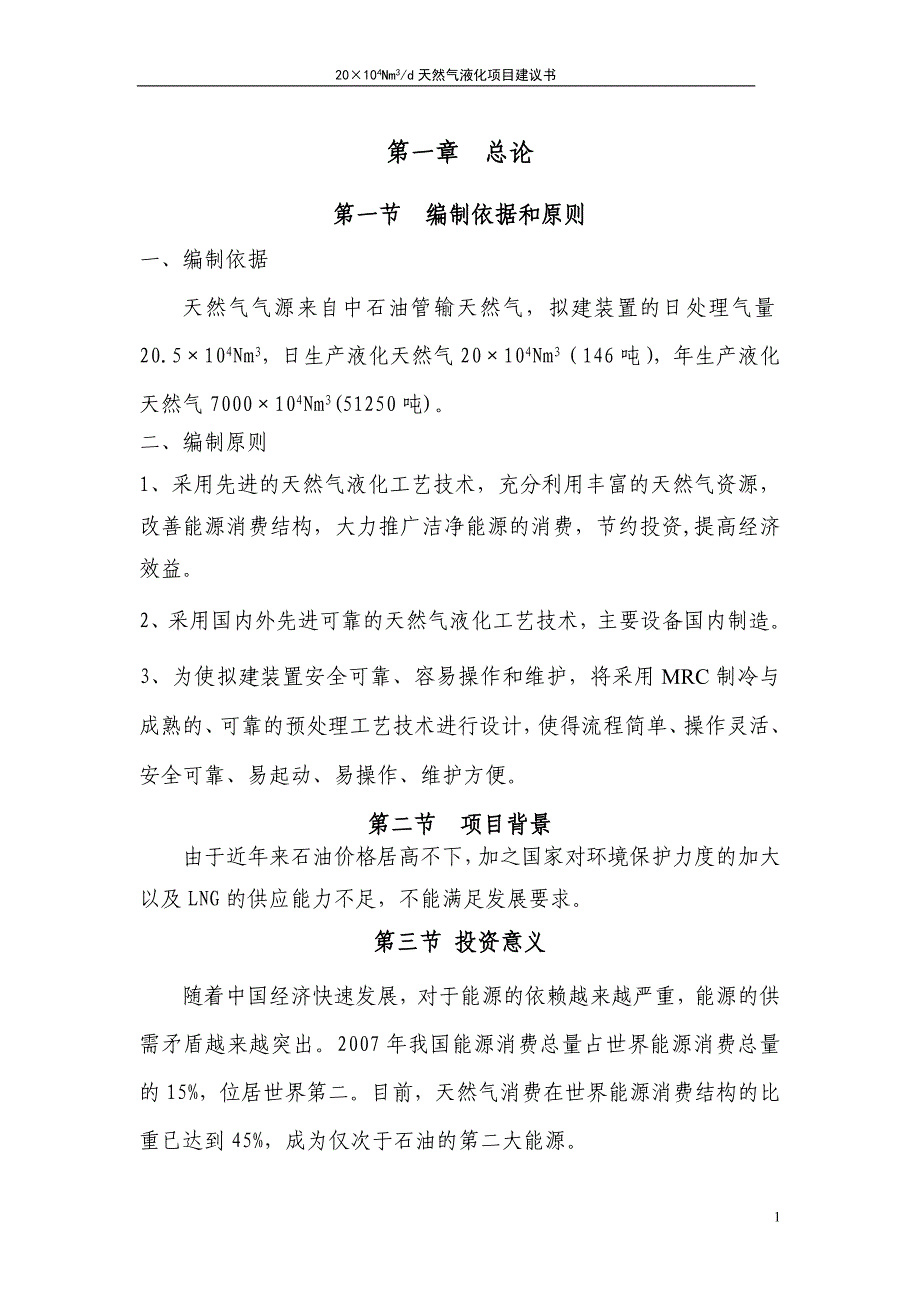 20×10⁴Nm³/d 天然气液化项目建议书
第一章　总论
第一节　编制依据和原则
一、编制依据
天然气气源来自中石油管输天然气，拟建装置的日处理气量
20.5×10⁴Nm³，日生产液化天然气 20×10⁴Nm³（146 吨），年生产液化
天然气 7000×10⁴Nm³(51250 吨)。
二、编制原则
1、采用先进的天然气液化工艺技术，充分利用丰富的天然气资源，
改善能源消费结构，大力推广洁净能源的消费，节约投资,提高经济
效益。
2、采用国内外先进可靠的天然气液化工艺技术，主要设备国内制造。
3、为使拟建装置安全可靠、容易操作和维护，将采用 MRC 制冷与
成熟的、可靠的预处理工艺技术进行设计，使得流程简单、操作灵活、
安全可靠、易起动、易操作、维护方便。
第二节　项目背景
由于近年来石油价格居高不下，加之国家对环境保护力度的加大
以及 LNG 的供应能力不足，不能满足发展要求。
第三节 投资意义
随着中国经济快速发展，对于能源的依赖越来越严重，能源的供
需矛盾越来越突出。2007 年我国能源消费总量占世界能源消费总量
的 15%，位居世界第二。目前，天然气消费在世界能源消费结构的比
重已达到 45%，成为仅次于石油的第二大能源。
1